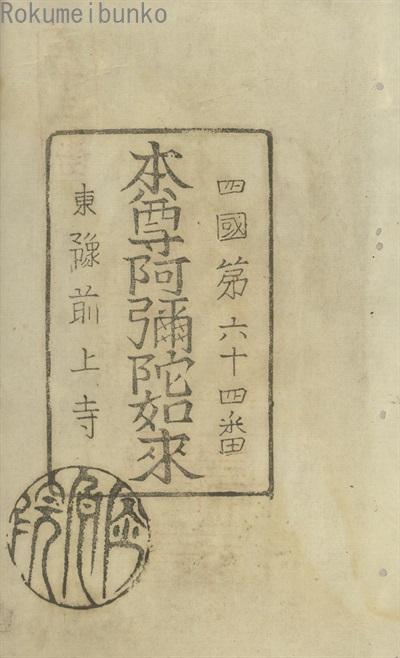 Rokumeibunko
四國第六十四番
本尊阿彌陀如來
東豫前上寺